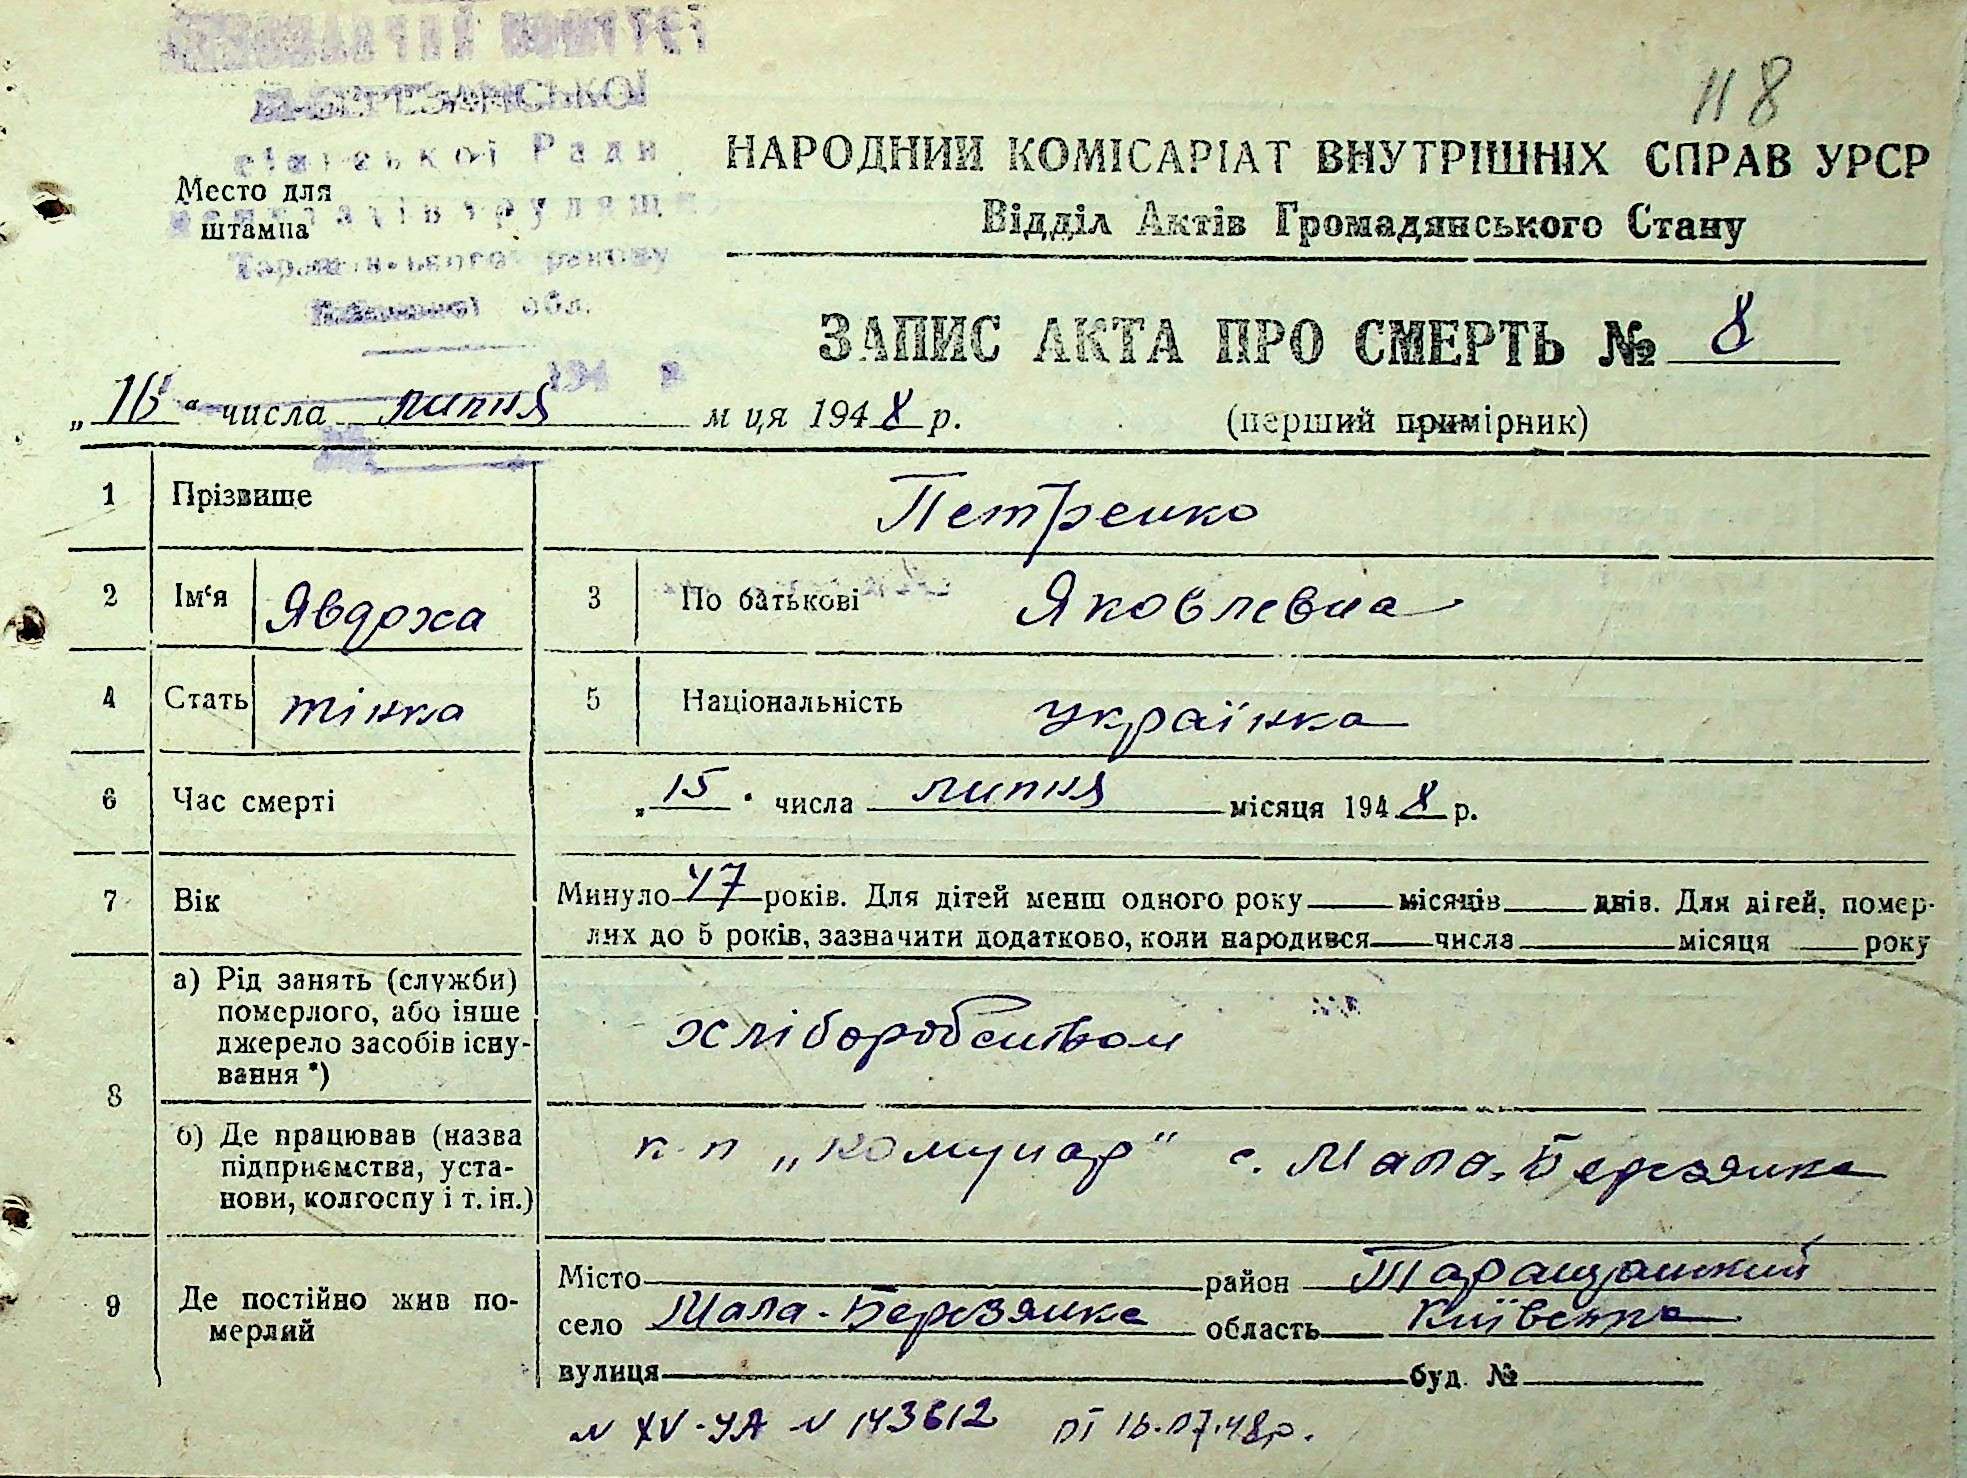 118
сільської Ради
Таращанського району
обл.
194 р
Место для
штампа
НАРОДНИЙ КОМІСАРІАТ ВНУТРІШНІХ СПРАВ УРСР
Відділ Актів Громадянського Стану
ЗАПИС АКТА ПРО СМЕРТЬ № 8
„16“ числа липня м ця 1948 р. (перший примірник)
1 Прізвище Петренко
2 Ім‘я Явдоха 3 По батькові Яковлевна
4 Стать жінка 5 Національність українка
6 Час смерті „15" числа липня місяця 1948 р.
7 Вік Минуло 47 років. Для дітей менш одного року місяців днів. Для дітей, помер-
лих до 5 років, зазначити додатково, коли народився числа місяця року
8 а) Рід занять (служби)
померлого, або інше
джерело засобів існу-
вання *)
хліборобством
б) Де працював (назва
підприємства, уста-
нови, колгоспу і т. ін.)
к-п „Комунар" с. Мала-Березянка
9 Де постійно жив по-
мерлий
Місто район Таращанский
село Мала-Березянка область Київська
вулиця буд. №
N XV-УА N 143612 от 16.07.48р.